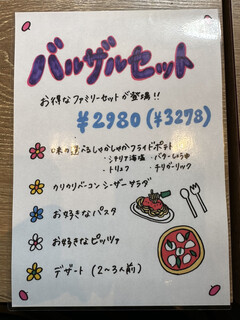 バルザルセット
お得なファミリーセットが登場!!
¥2980(¥3278)
味の選べるしゃかしゃかフライドポテト
・シチリア海塩 ・バターしょうゆ
・トリュフ ・チリガーリック
カリカリベーコンシーザーサラダ
お好きなパスタ
お好きなピッツァ
デザート(2〜3人前)